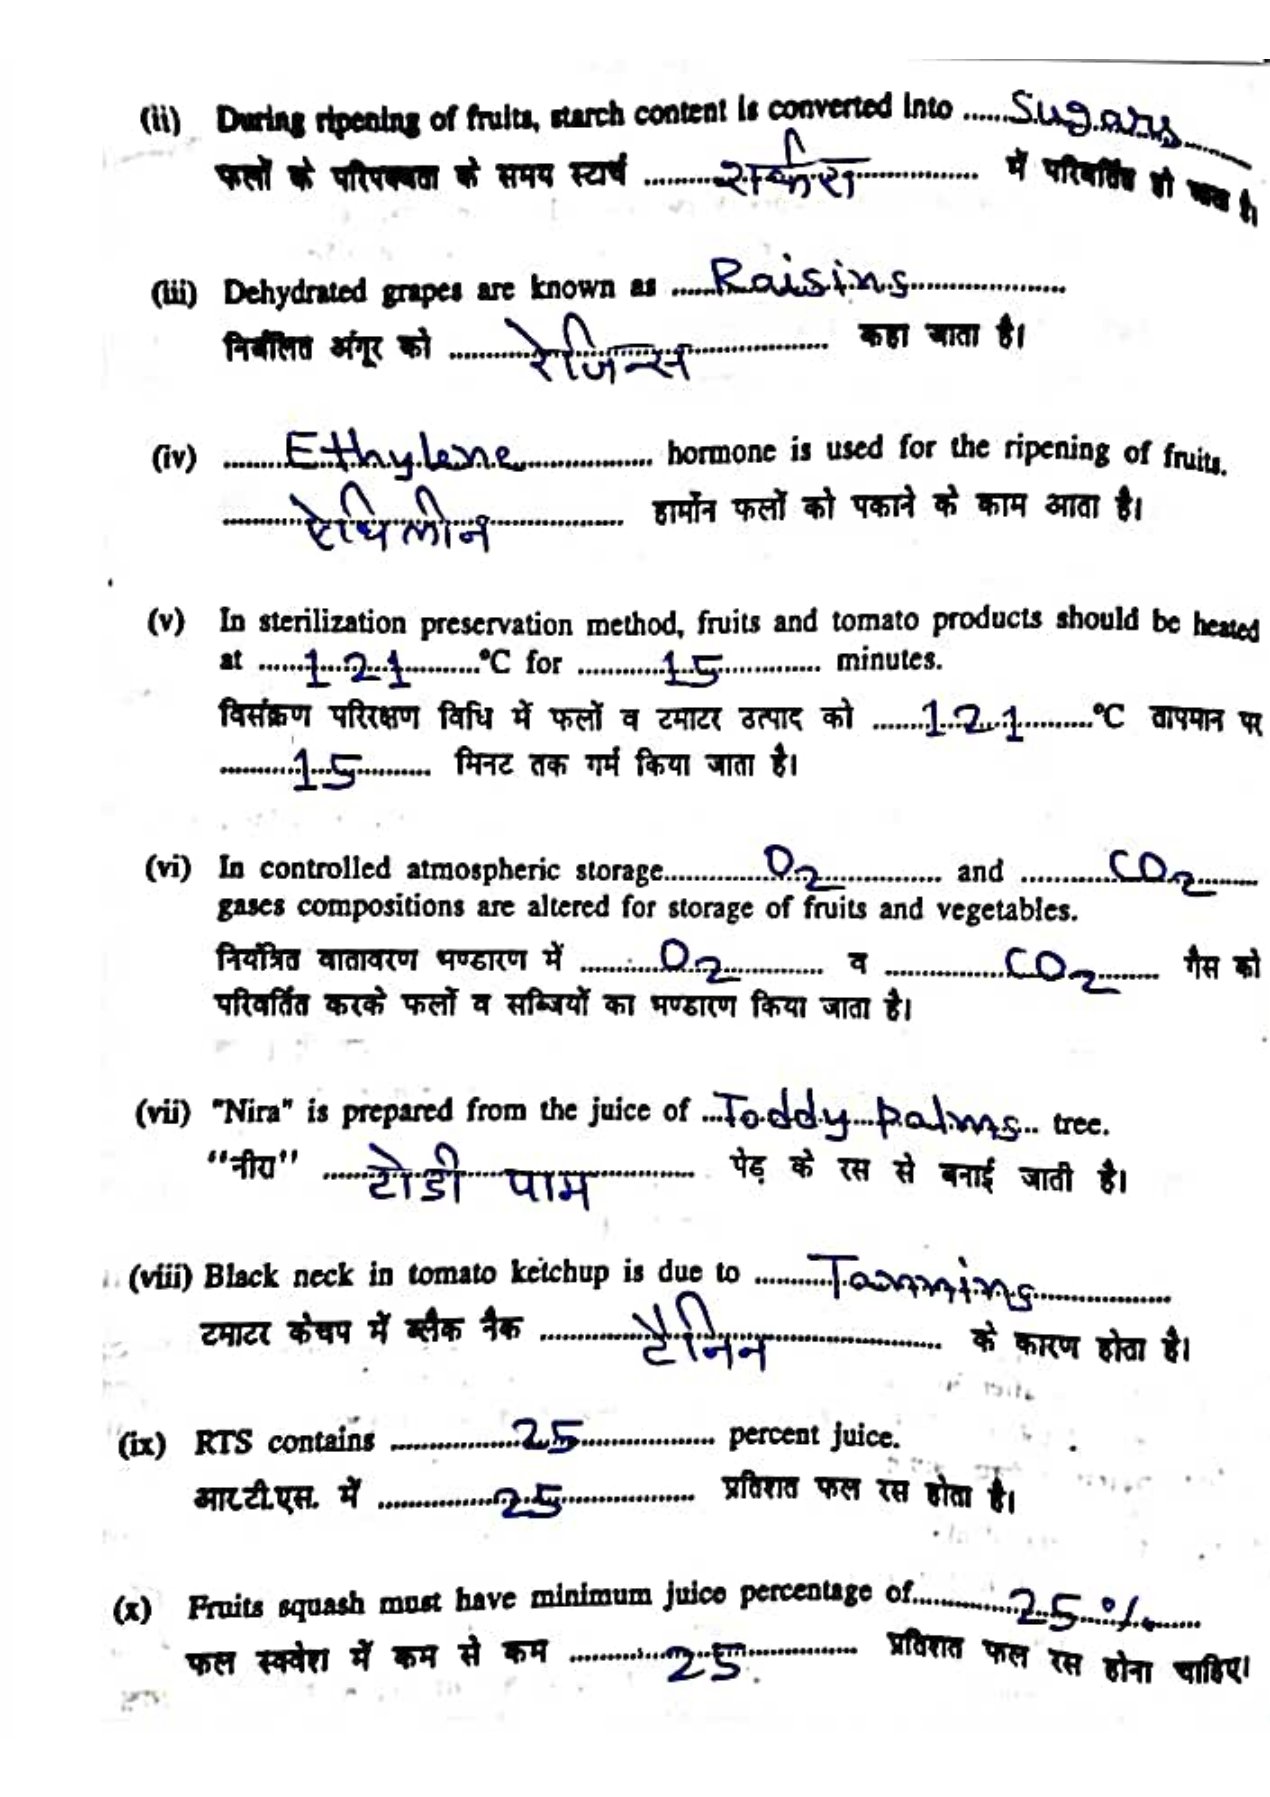 (ii) During ripening of fruits, starch content is converted into ......Sugars......
फलों के परिपक्वता के समय स्टार्च ..........शर्करा.......... में परिवर्तित हो जाता है।
(iii) Dehydrated grapes are known as ......Raisins......
निर्जलित अंगूर को ..........रेजिन्स.......... कहा जाता है।
(iv) ..........Ethylene.......... hormone is used for the ripening of fruits.
..........ऐथिलीन.......... हार्मोन फलों को पकाने के काम आता है।
(v) In sterilization preservation method, fruits and tomato products should be heated
at ......121......°C for ..........15.......... minutes.
विसंक्रण परिरक्षण विधि में फलों व टमाटर उत्पाद को ......121......°C तापमान पर
..........15.......... मिनट तक गर्म किया जाता है।
(vi) In controlled atmospheric storage..........O2.......... and ..........CO2..........
gases compositions are altered for storage of fruits and vegetables.
नियंत्रित वातावरण भण्डारण में ..........O2.......... व ..........CO2.......... गैस को
परिवर्तित करके फलों व सब्जियों का भण्डारण किया जाता है।
(vii) "Nira" is prepared from the juice of ...Toddy palms... tree.
"नीरा" ......टोडी पाम...... पेड़ के रस से बनाई जाती है।
(viii) Black neck in tomato ketchup is due to ..........Tannins..........
टमाटर केचप में ब्लैक नैक ..........टैनिन.......... के कारण होता है।
(ix) RTS contains ..........25.......... percent juice.
आर.टी.एस. में ..........25.......... प्रतिशत फल रस होता है।
(x) Fruits squash must have minimum juice percentage of..........25%..........
फल स्क्वेश में कम से कम ..........25.......... प्रतिशत फल रस होना चाहिए।